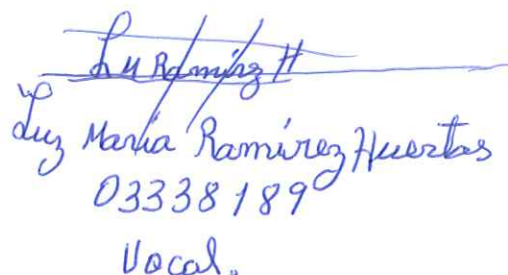 Lu Ramírez H
Luz María Ramírez Huertas
03338189
Vocal.